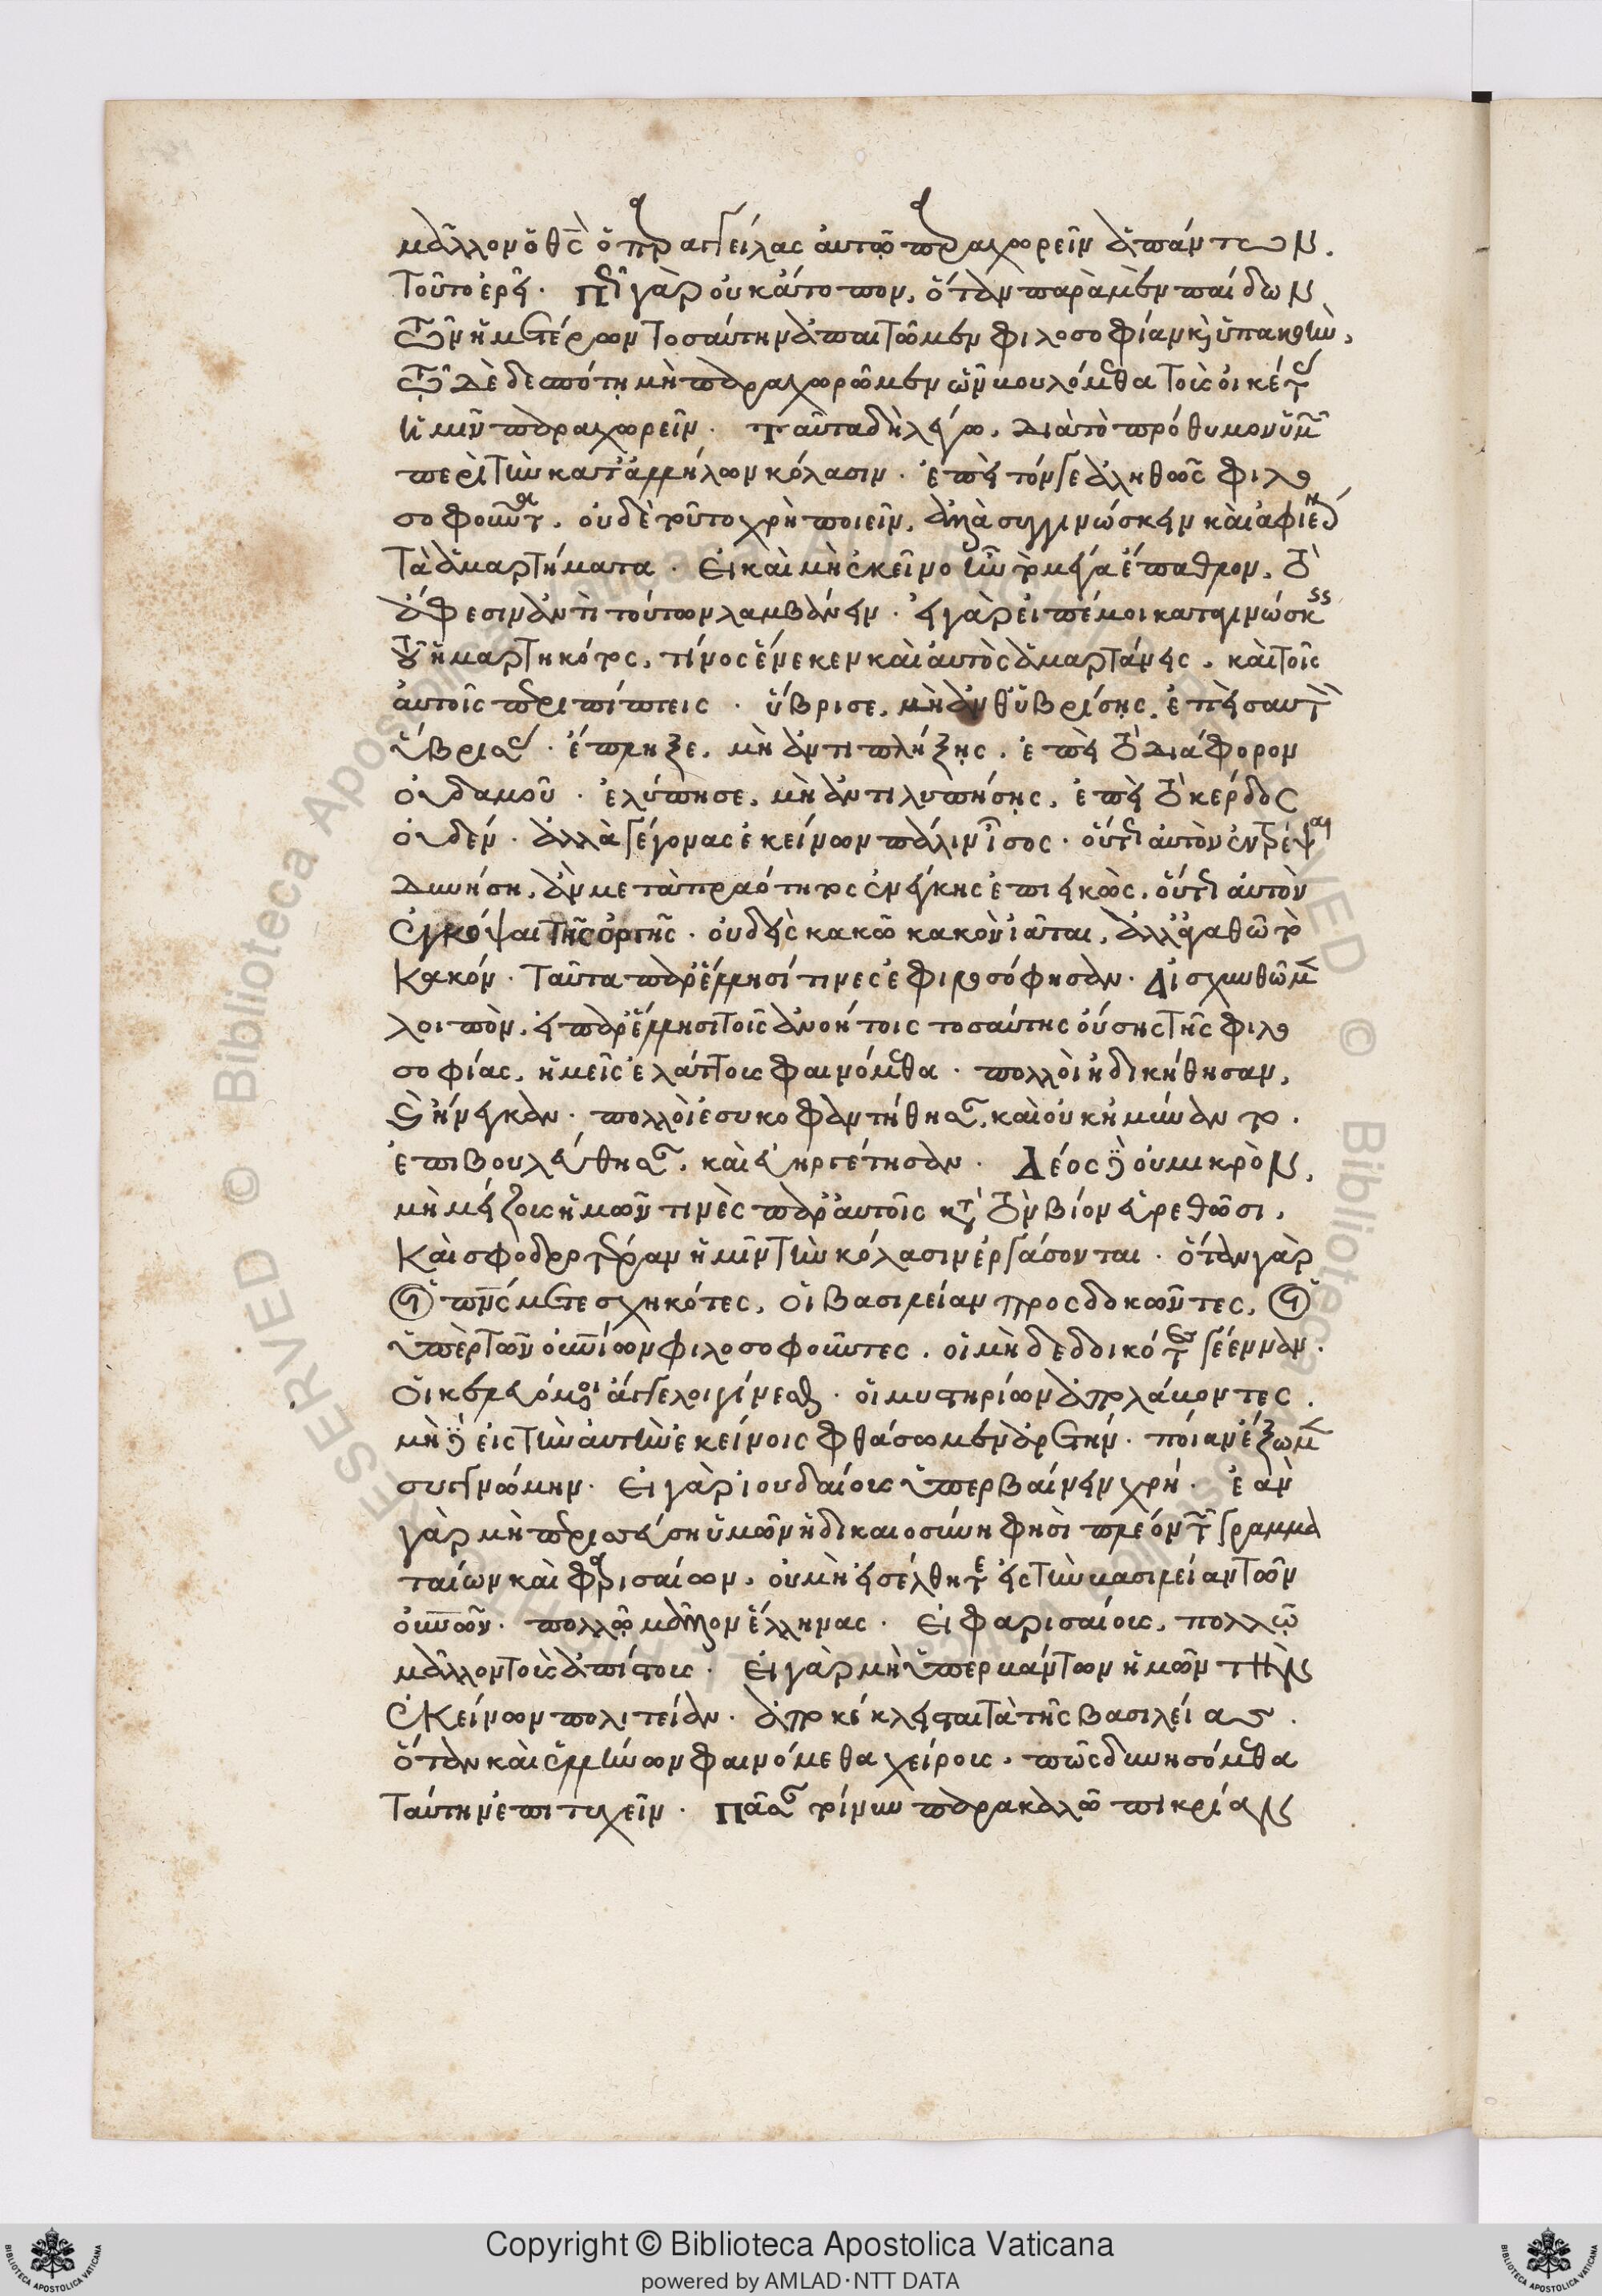 μᾶλλον ὁ θς ὁ παραγγείλας αὐτῷ παραχωρεῖν ἁπάντων.
τοῦτο ἐρεῖ. πῶς γὰρ οὐκ ἄτοπον, ὅταν παρὰ μὲν παίδων
τῶν ἡμετέρων τοσαύτην ἀπαιτῶμεν φιλοσοφίαν καὶ ὑπακοὴν,
τῷ δὲ δεσπότῃ μὴ παραχωρῶμεν ὧν βουλόμεθα τοὺς οἰκέτας
ἡμῖν παραχωρεῖν. ταῦτα δὴ λέγω, διὰ τὸ πρόθυμον ὑμῶν
περὶ τὴν κατ' ἀλλήλων κόλασιν. ἐπεὶ τόν γε ἀληθῶς φιλο
σοφοῦντα, οὐδὲ τοῦτο χρὴ ποιεῖν, ἀλλὰ συγγινώσκειν καὶ ἀφιέναι
τὰ ἁμαρτήματα. εἰ καὶ μὴ ἐκεῖνο ἦν τὸ μέγα ἔπαθλον, τὸ
ἄφεσιν ἀντὶ τούτων λαμβάνειν. εἰ γὰρ εἰπέ μοι καταγινώσκεις
τοῦ ἡμαρτηκότος, τίνος ἕνεκεν καὶ αὐτὸς ἁμαρτάνεις, καὶ τοῖς
αὐτοῖς περιπίπτεις. ὕβρισε, μὴ ἀνθυβρίσῃς, ἐπεὶ σαυτὸν
ὕβρισας. ἔπληξε, μὴ ἀντιπλήξῃς, ἐπεὶ τὸ διάφορον
οὐδαμοῦ. ἐλύπησε, μὴ ἀντιλυπήσῃς, ἐπεὶ τὸ κέρδος
οὐδέν. ἀλλὰ γέγονας ἐκείνων πάλιν ἴσος. οὕτω αὐτὸν ἐντρέψαι
δυνήσῃ, ἂν μετὰ πραότητος ἐνέγκῃς ἐπιεικῶς, οὕτω αὐτὸν
ἐγκόψαι τῆς ὀργῆς. οὐδεὶς κακῷ κακὸν ἰᾶται, ἀλλ' ἀγαθῷ τὸ
κακόν. ταῦτα παρ' ἕλλησί τινες ἐφιλοσόφησαν. αἰσχυνθῶμεν
λοιπὸν, εἰ παρ' ἕλλησι τοῖς ἀνοήτοις τοσαύτης οὔσης τῆς φιλο
σοφίας, ἡμεῖς ἐλάττους φαινόμεθα. πολλοὶ ἠδικήθησαν,
καὶ ἤνεγκαν. πολλοὶ ἐσυκοφαντήθησαν, καὶ οὐκ ἠμύναντο.
ἐπιβουλεύθησαν, καὶ εὐηργέτησαν. δέος δὲ οὐ μικρὸν,
μὴ μείζους ἡμῶν τινὲς παρ' αὐτοῖς κατὰ τὸν βίον εὑρεθῶσι,
καὶ σφοδροτέραν ἡμῖν τὴν κόλασιν ἐργάσονται. ὅταν γὰρ
οἱ πνς μετεσχηκότες, οἱ βασιλείαν προσδοκῶντες, οἱ
ὑπὲρ τῶν οὐνίων φιλοσοφοῦντες, οἱ μὴ δεδοικότες γέενναν.
οἱ κελευόμενοι ἄγγελοι γίνεσθαι. οἱ μυστηρίων ἀπολάυοντες.
μὴ δὲ εἰς τὴν αὐτὴν ἐκείνοις φθάσωμεν ἀρετήν. ποίαν ἕξωμεν
συγγνώμην. εἰ γὰρ ἰουδαίους ὑπερβαίνειν χρή. ἐὰν
γὰρ μὴ περισσεύσῃ ὑμῶν ἡ δικαιοσύνη φησὶ πλέον τῶν γραμμα
ταίων καὶ φαρισαίων, οὐ μὴ εἰσέλθητε εἰς τὴν βασιλείαν τῶν
οὐνῶν. πολλῷ μᾶλλον ἕλληνας. εἰ φαρισαίους, πολλῷ
μᾶλλον τοὺς ἀπίστους. εἰ γὰρ μὴ ὑπερβάντων ἡμῶν τὴν
ἐκείνων πολιτείαν. ἀποκέκλεισται τὰ τῆς βασιλείας.
ὅταν καὶ ἑλλήνων φαινόμεθα χείρους, πῶς δυνησόμεθα
ταύτην ἐπιτυχεῖν. πᾶσαν τοίνυν παρακαλῶ πικρίαν